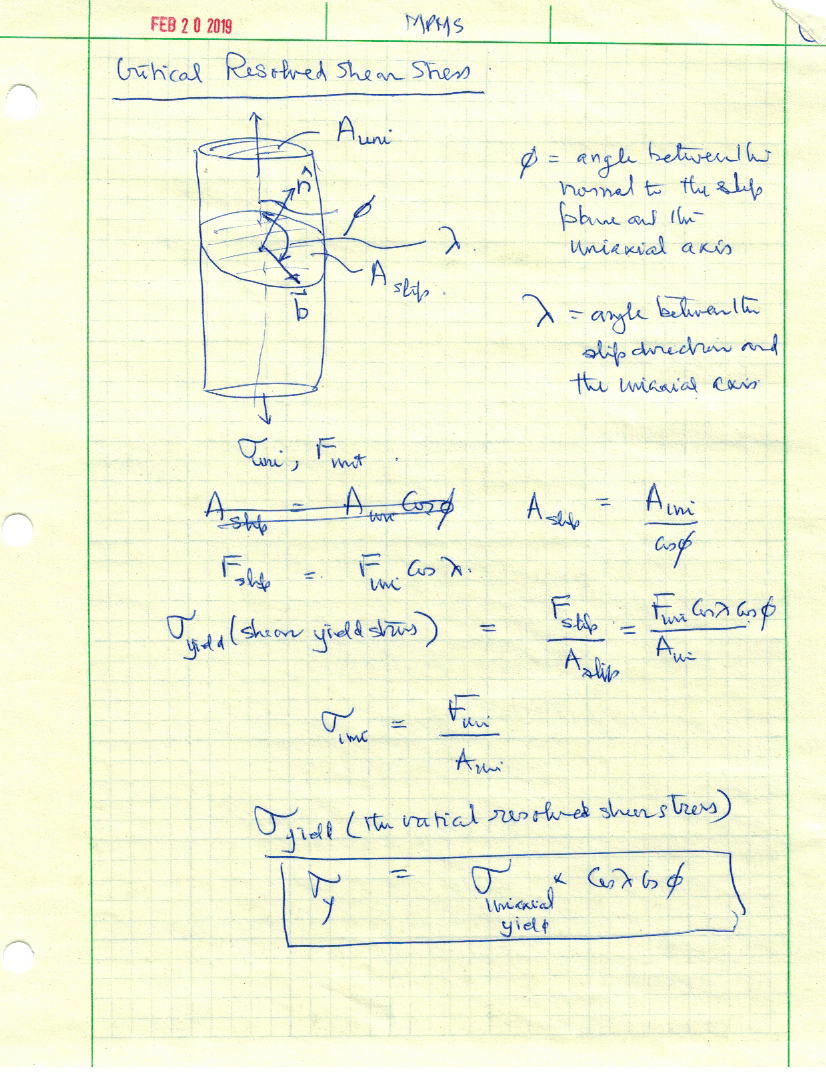 FEB 20 2019
MPMS
Critical Resolved Shear Stress
A uni
n̂
ϕ
λ
A slip
b⃗
ϕ = angle between the
normal to the slip
plane and the
uniaxial axis
λ = angle between the
slip direction and
the uniaxial axis
σ uni , F
A slip = A uni Cos ϕ
A slip = A uni / cos ϕ
F slip = F uni Cos λ.
τ yield (shear yield stress) = F slip / A slip = F uni Cos λ Cos ϕ / A uni
σ uni = F uni / A uni
σ yield (the critical resolved shear stress)
τ y = σ uniaxial yield × Cos λ Cos ϕ